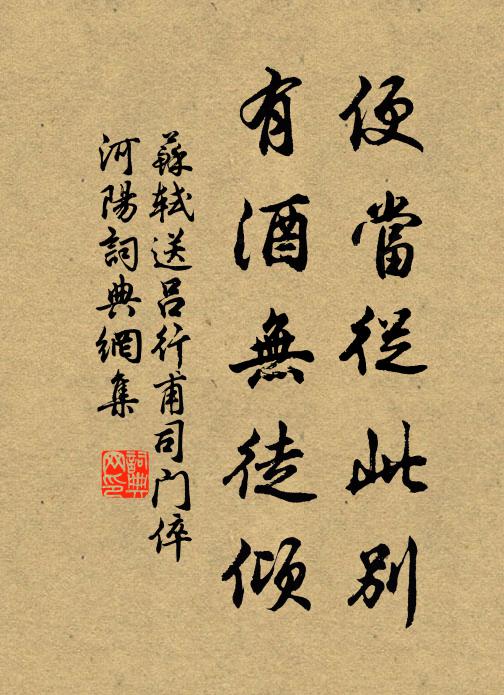 便當從此別
有酒無徒傾
蘇軾送呂行甫司門倅
河陽詞典網集
詞典
网印